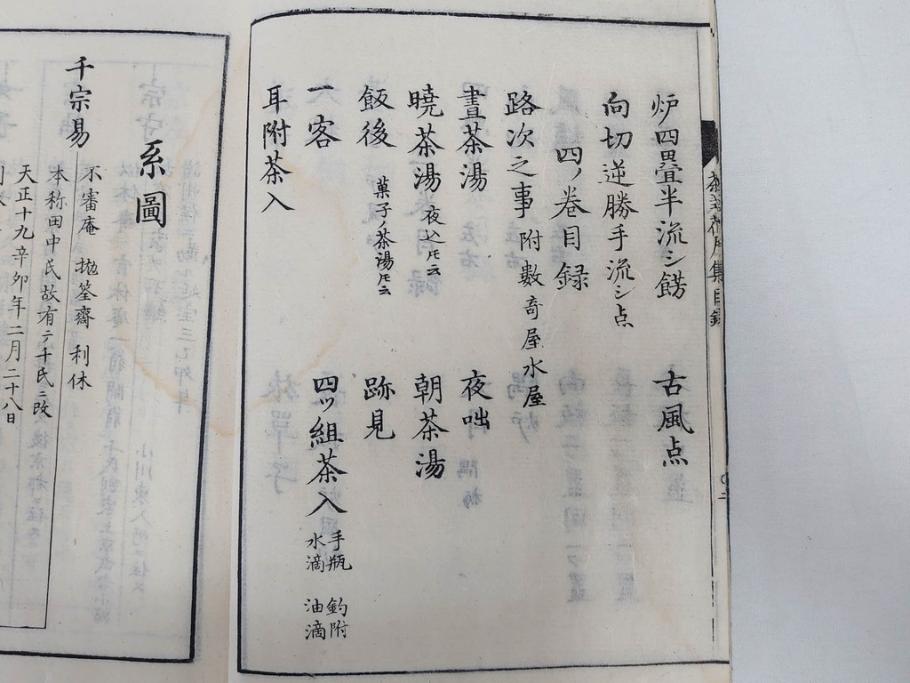 炉四畳半流シ餝　古風点
向切逆勝手流シ点
四ノ巻目録
路次之事 附数竒屋水屋
晝茶湯　夜咄
曉茶湯 夜込𪜈云　朝茶湯
飯後 菓子ノ茶湯𪜈云　跡見
一客　四ッ組茶入 手瓶 釣附 水滴 油滴
耳附茶入
系圖
千宗易
不審庵 抛筌齋 利休
本称田中氏故有テ千氏ニ改
天正十九辛卯年二月二十八日